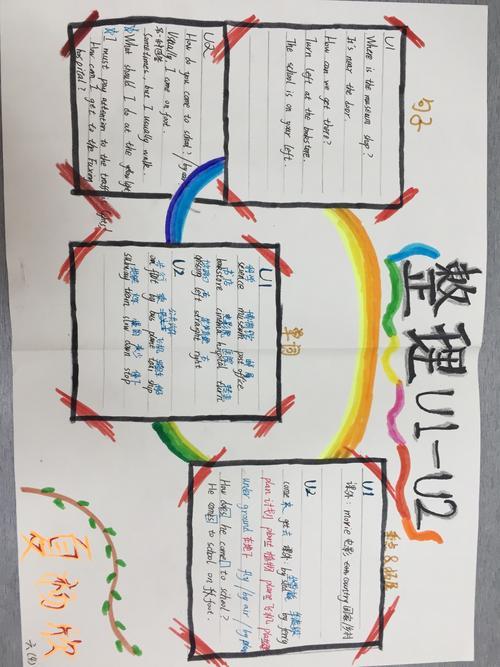 整理U1-U2
句子
U1
Where is the museum shop?
It's near the door.
How can we get there?
Turn left at the bookstore.
The school is on your left.
U2
How do you come to school? /by
Usually, I come on foot.
Sometimes, but I usually walk.
What should I do at the
I must pay attention to the traffic lights!
How can I get to the Fuxing
hospital?
单词
U1
科学 博物馆 邮局
science museum post office
书店 电影院 医院
bookstore cinema hospital turn
along left straight right
U2
on foot by bus plane taxi ship
subway train slow down stop
重点&
U1
课外: movie 电影 country
U2
come 来 get 去 课外: by by ferry
plan 计划 plant 植物 plane 飞机
under ground 在地下 fly /by air / by plane
How does he come to school?
He comes to school on foot.
夏
六(4)